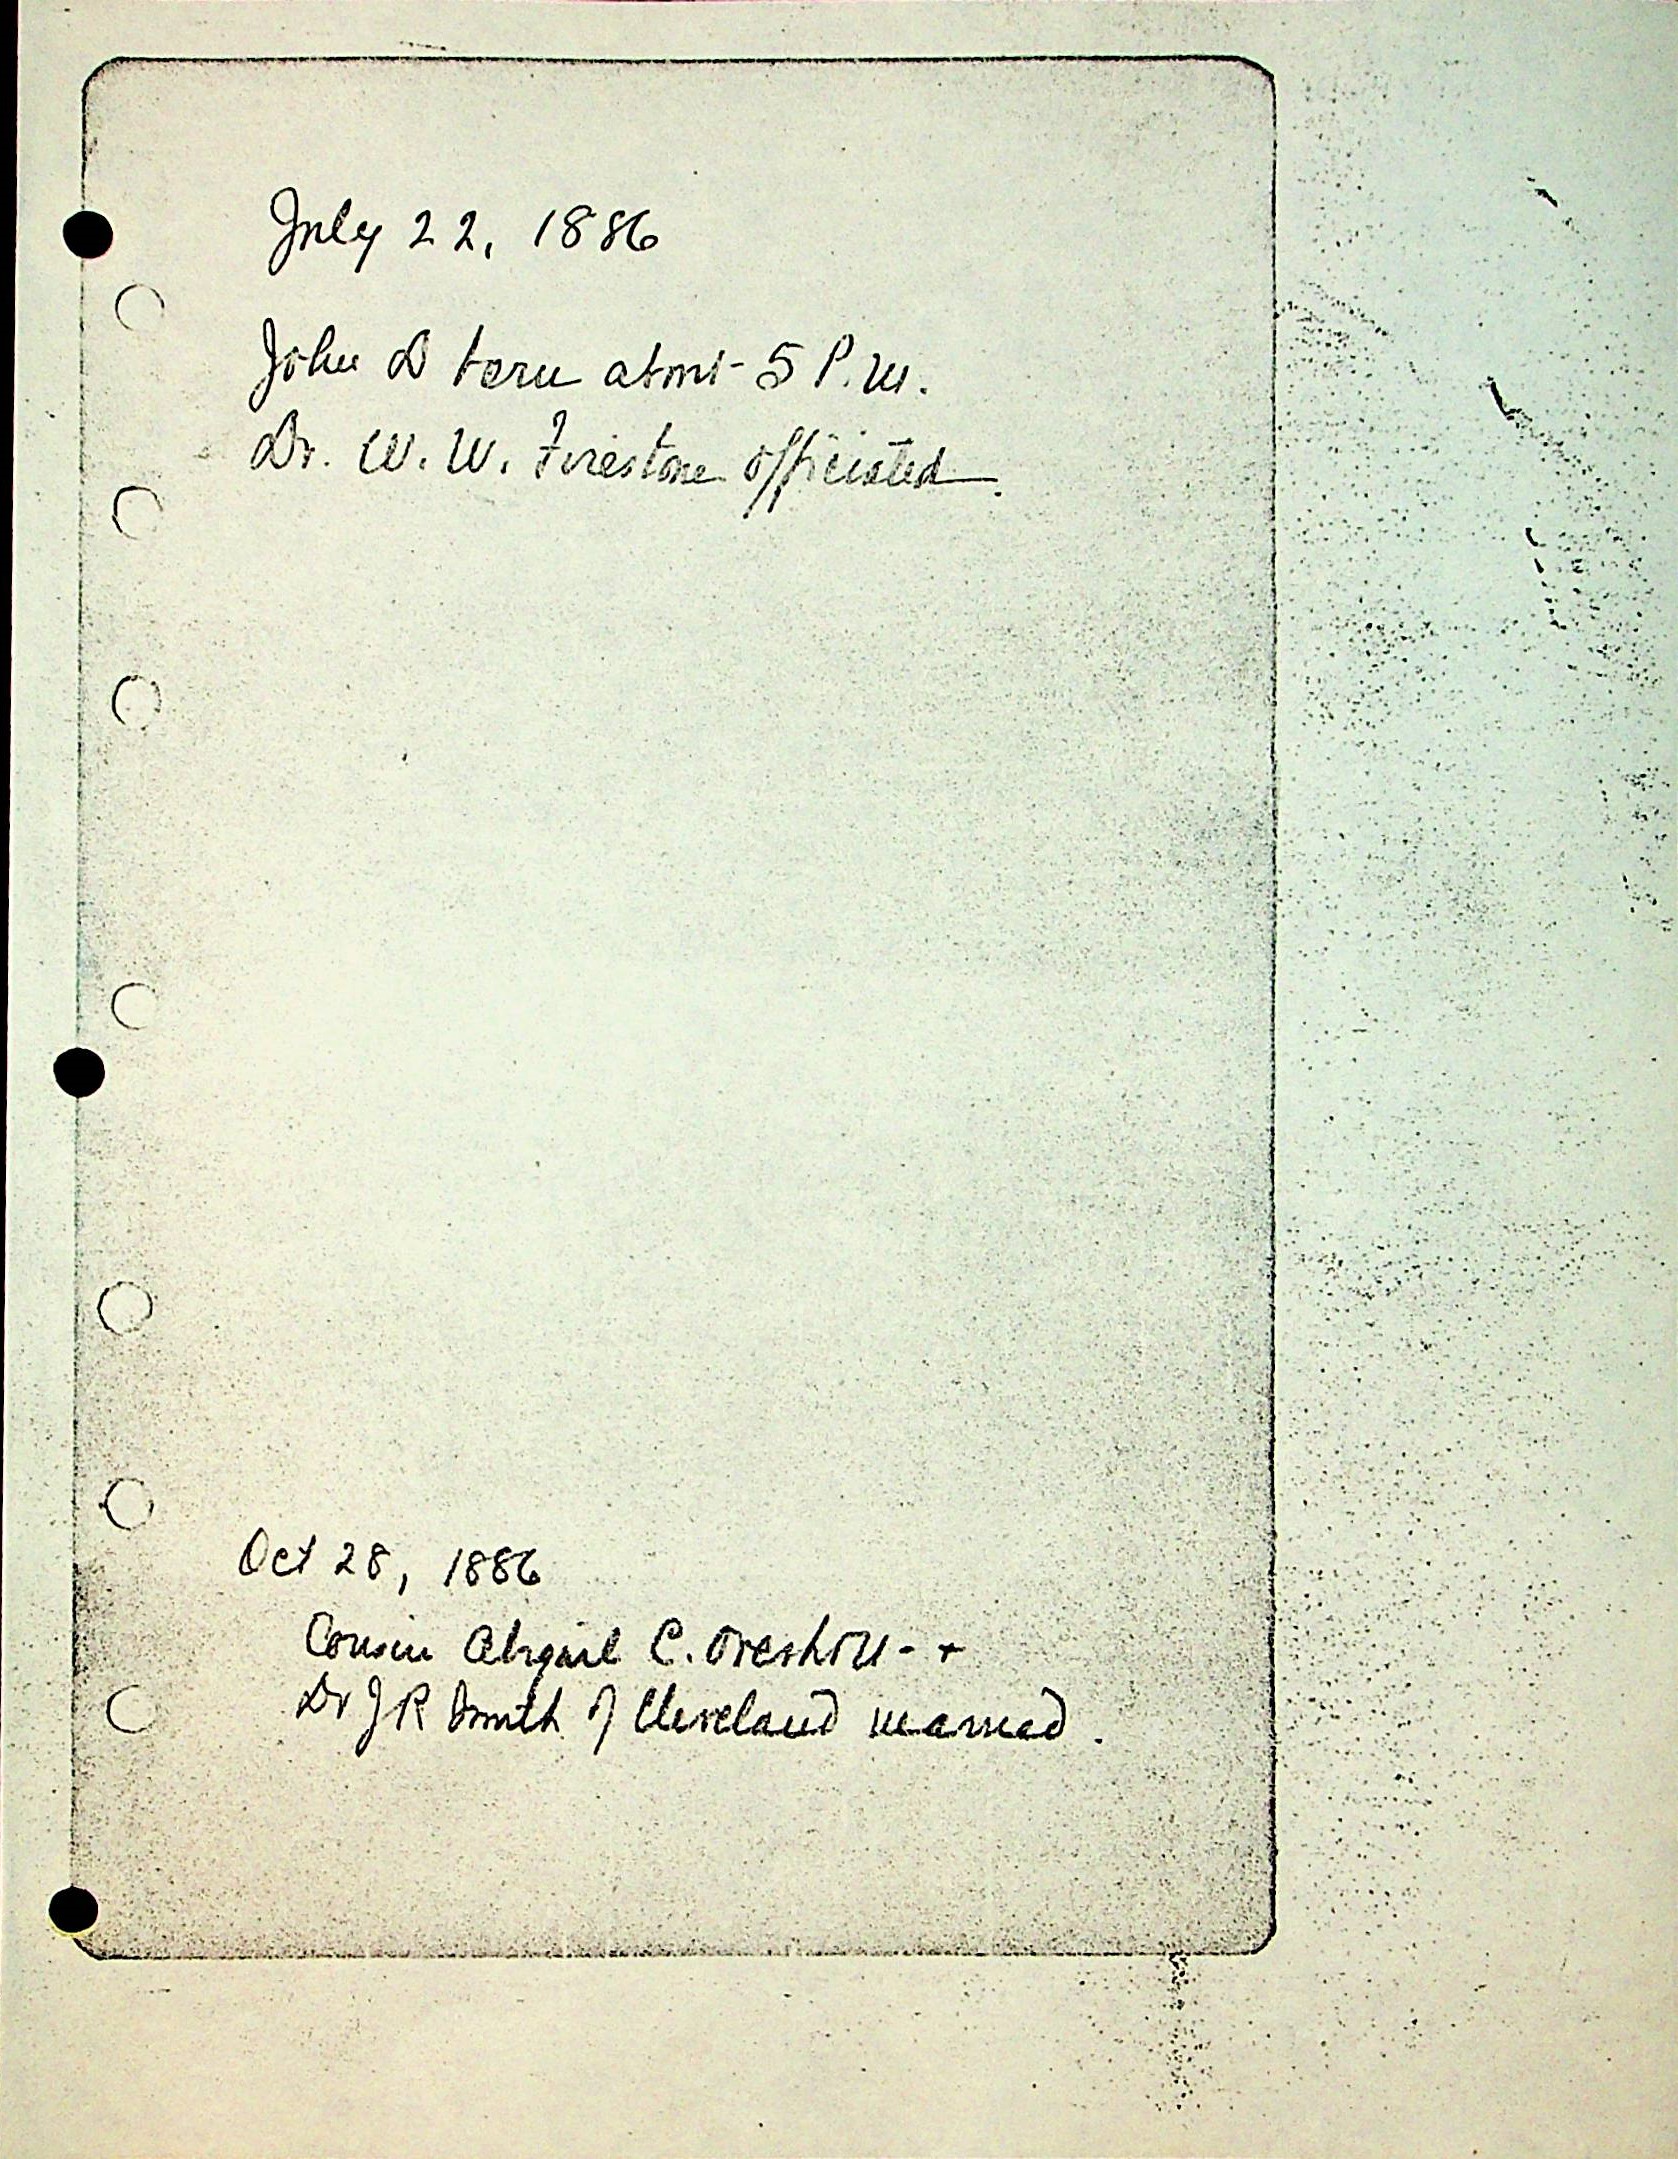 July 22, 1886
John D born about 5 P.M.
Dr. W. W. Firestone officiated.
Oct 28, 1886
Cousin Abigail C. +
Dr J R Smith of Cleveland married.